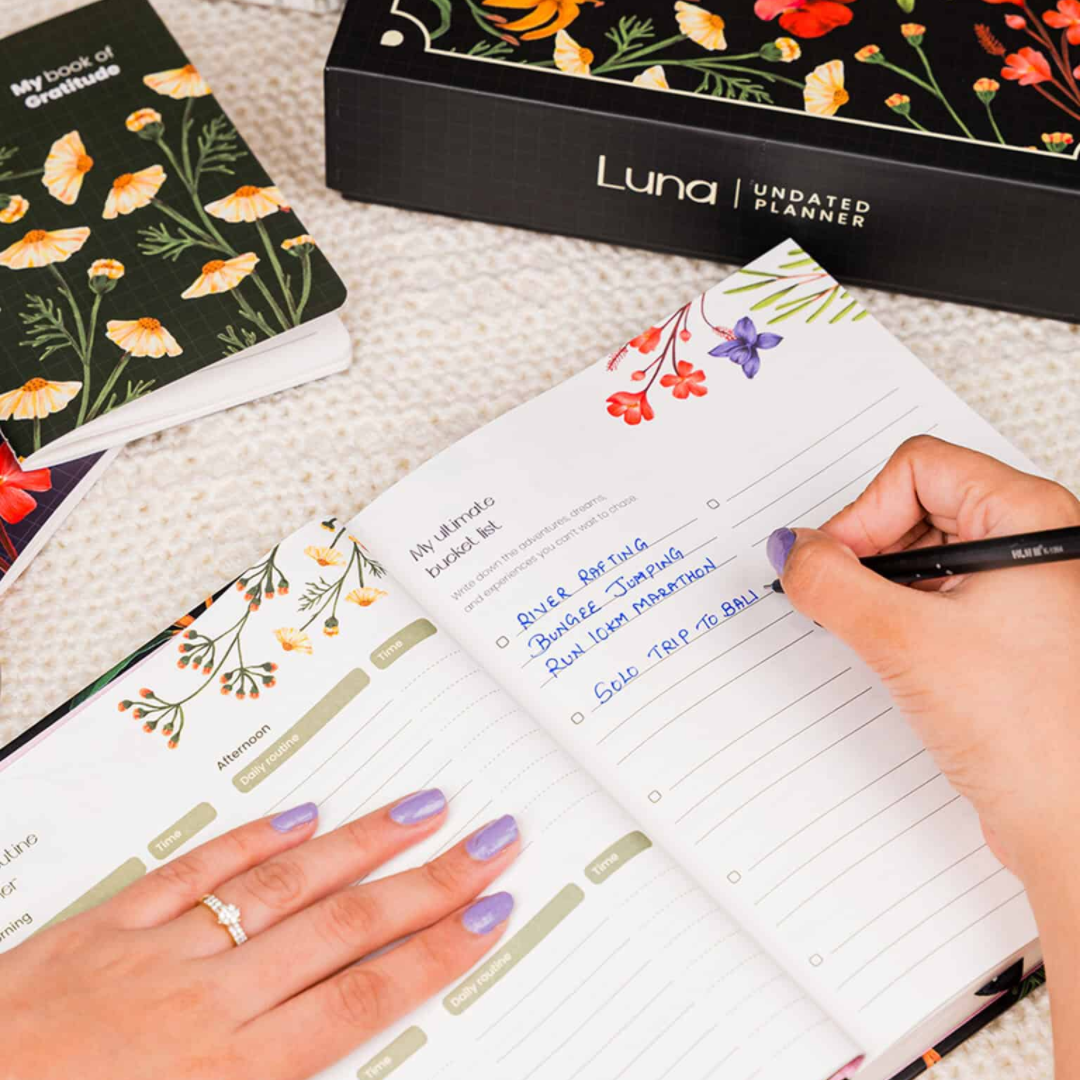 My book of
Gratitude
Luna | UNDATED
PLANNER
My ultimate
bucket list
Write down the adventures, dreams,
and experiences you can't wait to chase.
RIVER RAFTING
BUNGEE JUMPING
RUN 10KM MARATHON
SOLO TRIP TO BALI
Time
Afternoon
Daily routine
Time
Time
Daily routine
Time